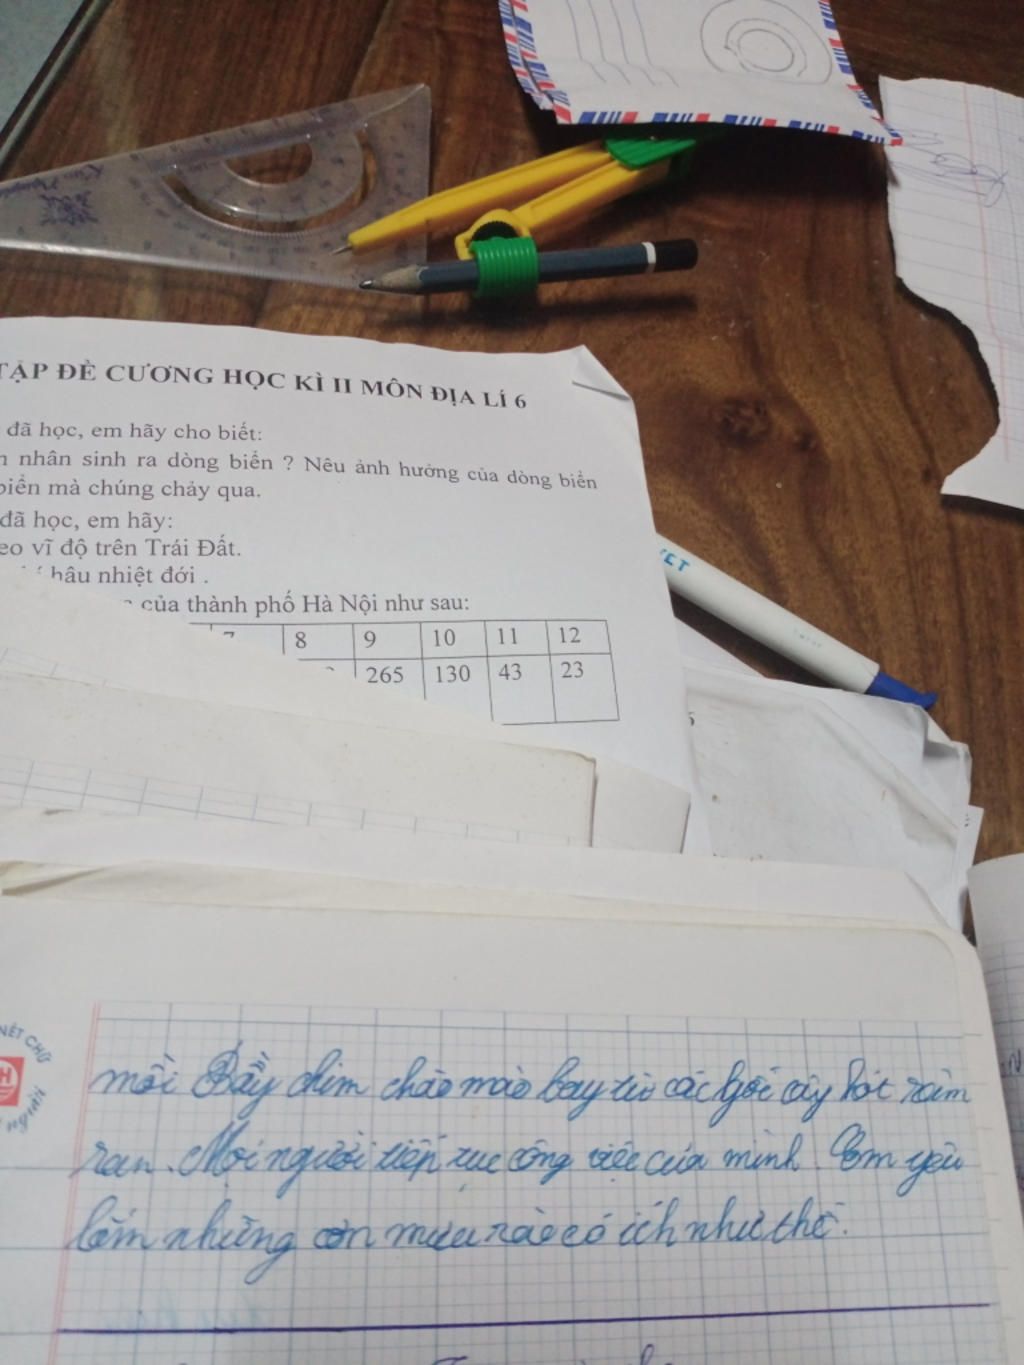 TẬP ĐỀ CƯƠNG HỌC KÌ II MÔN ĐỊA LÍ 6
đã học, em hãy cho biết:
nhân sinh ra dòng biển ? Nêu ảnh hưởng của dòng biển
biển mà chúng chảy qua.
đã học, em hãy:
eo vĩ độ trên Trái Đất.
hậu nhiệt đới .
của thành phố Hà Nội như sau:
7 8 9 10 11 12
265 130 43 23
NÉT CHỮ
người
mồi Bầy chim chào mào bay từ các gốc cây hót râm
ran. Mọi người tiếp tục công việc của mình. Em yêu
lắm những cơn mưa rào có ích như thế.